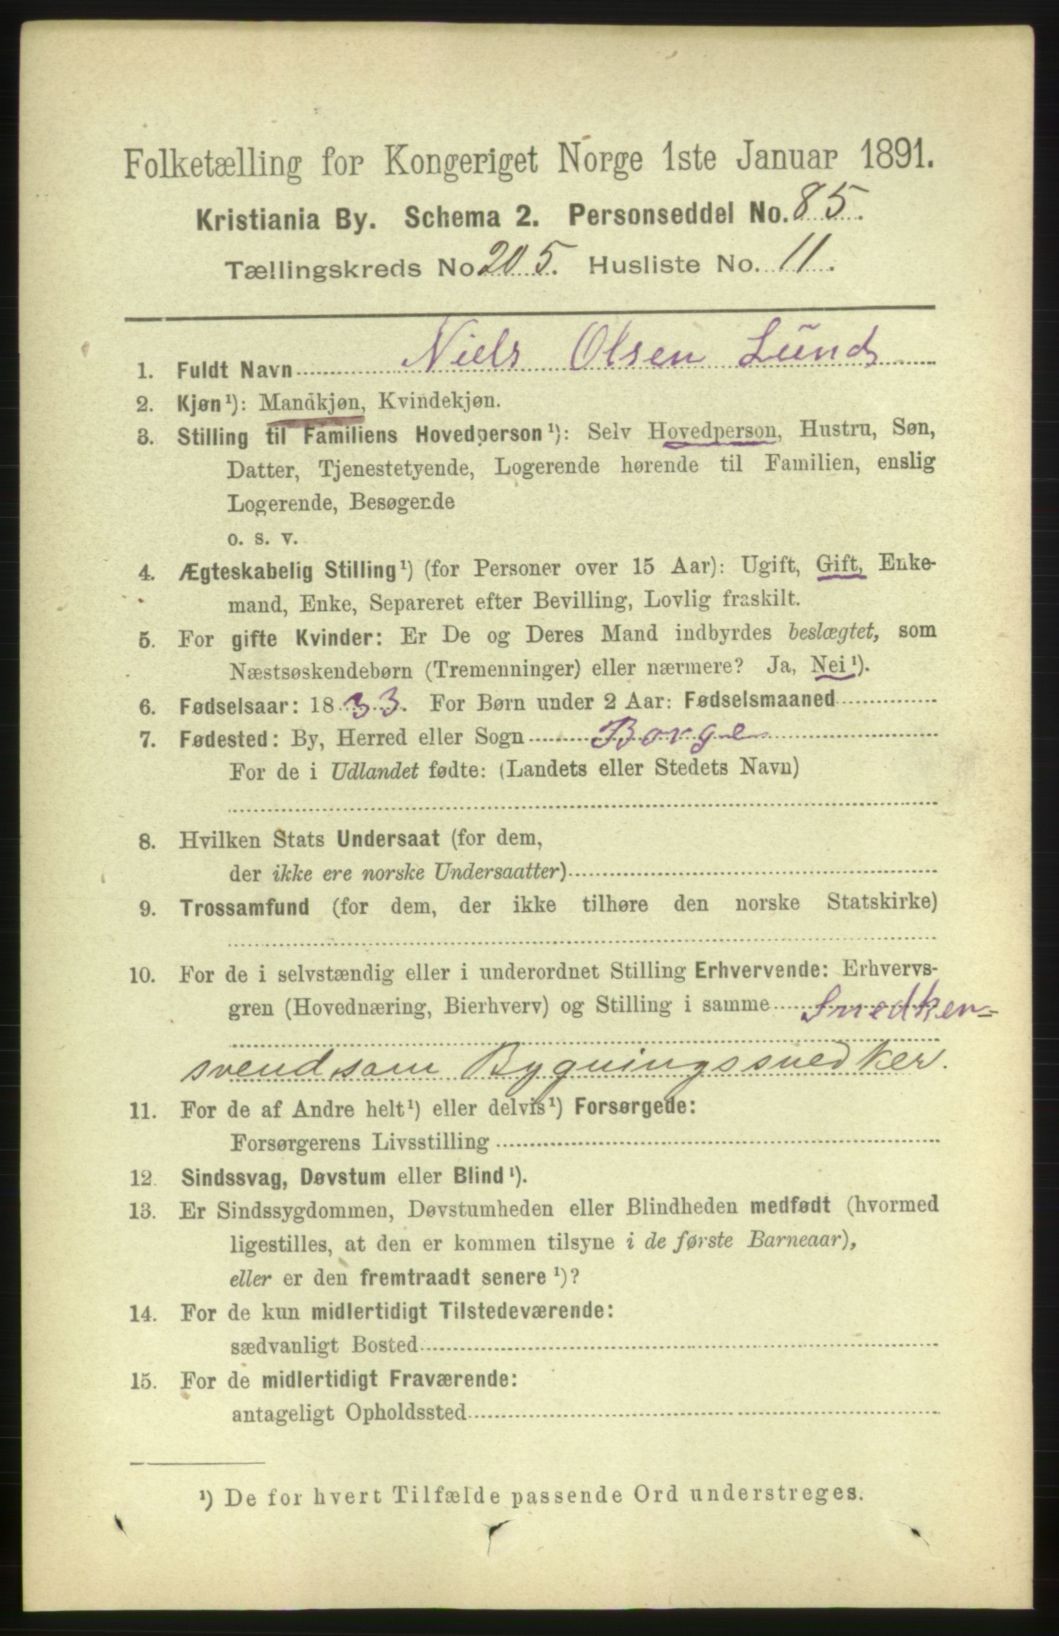 Folketælling for Kongeriget Norge 1ste Januar 1891.
Kristiania By. Schema 2. Personseddel No. 85.
Tællingskreds No. 205. Husliste No. 11.
1. Fuldt Navn Niels Olsen Lund
2. Kjøn¹): Mandkjøn, Kvindekjøn.
3. Stilling til Familiens Hovedperson¹): Selv Hovedperson, Hustru, Søn,
Datter, Tjenestetyende, Logerende hørende til Familien, enslig
Logerende, Besøgende
o. s. v.
4. Ægteskabelig Stilling¹) (for Personer over 15 Aar): Ugift, Gift, Enke-
mand, Enke, Separeret efter Bevilling, Lovlig fraskilt.
5. For gifte Kvinder: Er De og Deres Mand indbyrdes beslægtet, som
Næstsøskendebørn (Tremenninger) eller nærmere? Ja, Nei¹).
6. Fødselsaar: 1833. For Børn under 2 Aar: Fødselsmaaned
7. Fødested: By, Herred eller Sogn Borge
For de i Udlandet fødte: (Landets eller Stedets Navn)
8. Hvilken Stats Undersaat (for dem,
der ikke ere norske Undersaatter)
9. Trossamfund (for dem, der ikke tilhøre den norske Statskirke)
10. For de i selvstændig eller i underordnet Stilling Erhvervende: Erhvervs-
gren (Hovednæring, Bierhverv) og Stilling i samme Snedker=
svend som Bygningssnedker.
11. For de af Andre helt¹) eller delvis¹) Forsørgede:
Forsørgerens Livsstilling
12. Sindssvag, Døvstum eller Blind¹).
13. Er Sindssygdommen, Døvstumheden eller Blindheden medfødt (hvormed
ligestilles, at den er kommen tilsyne i de første Barneaar),
eller er den fremtraadt senere¹)?
14. For de kun midlertidigt Tilstedeværende:
sædvanligt Bosted
15. For de midlertidigt Fraværende:
antageligt Opholdssted
¹) De for hvert Tilfælde passende Ord understreges.